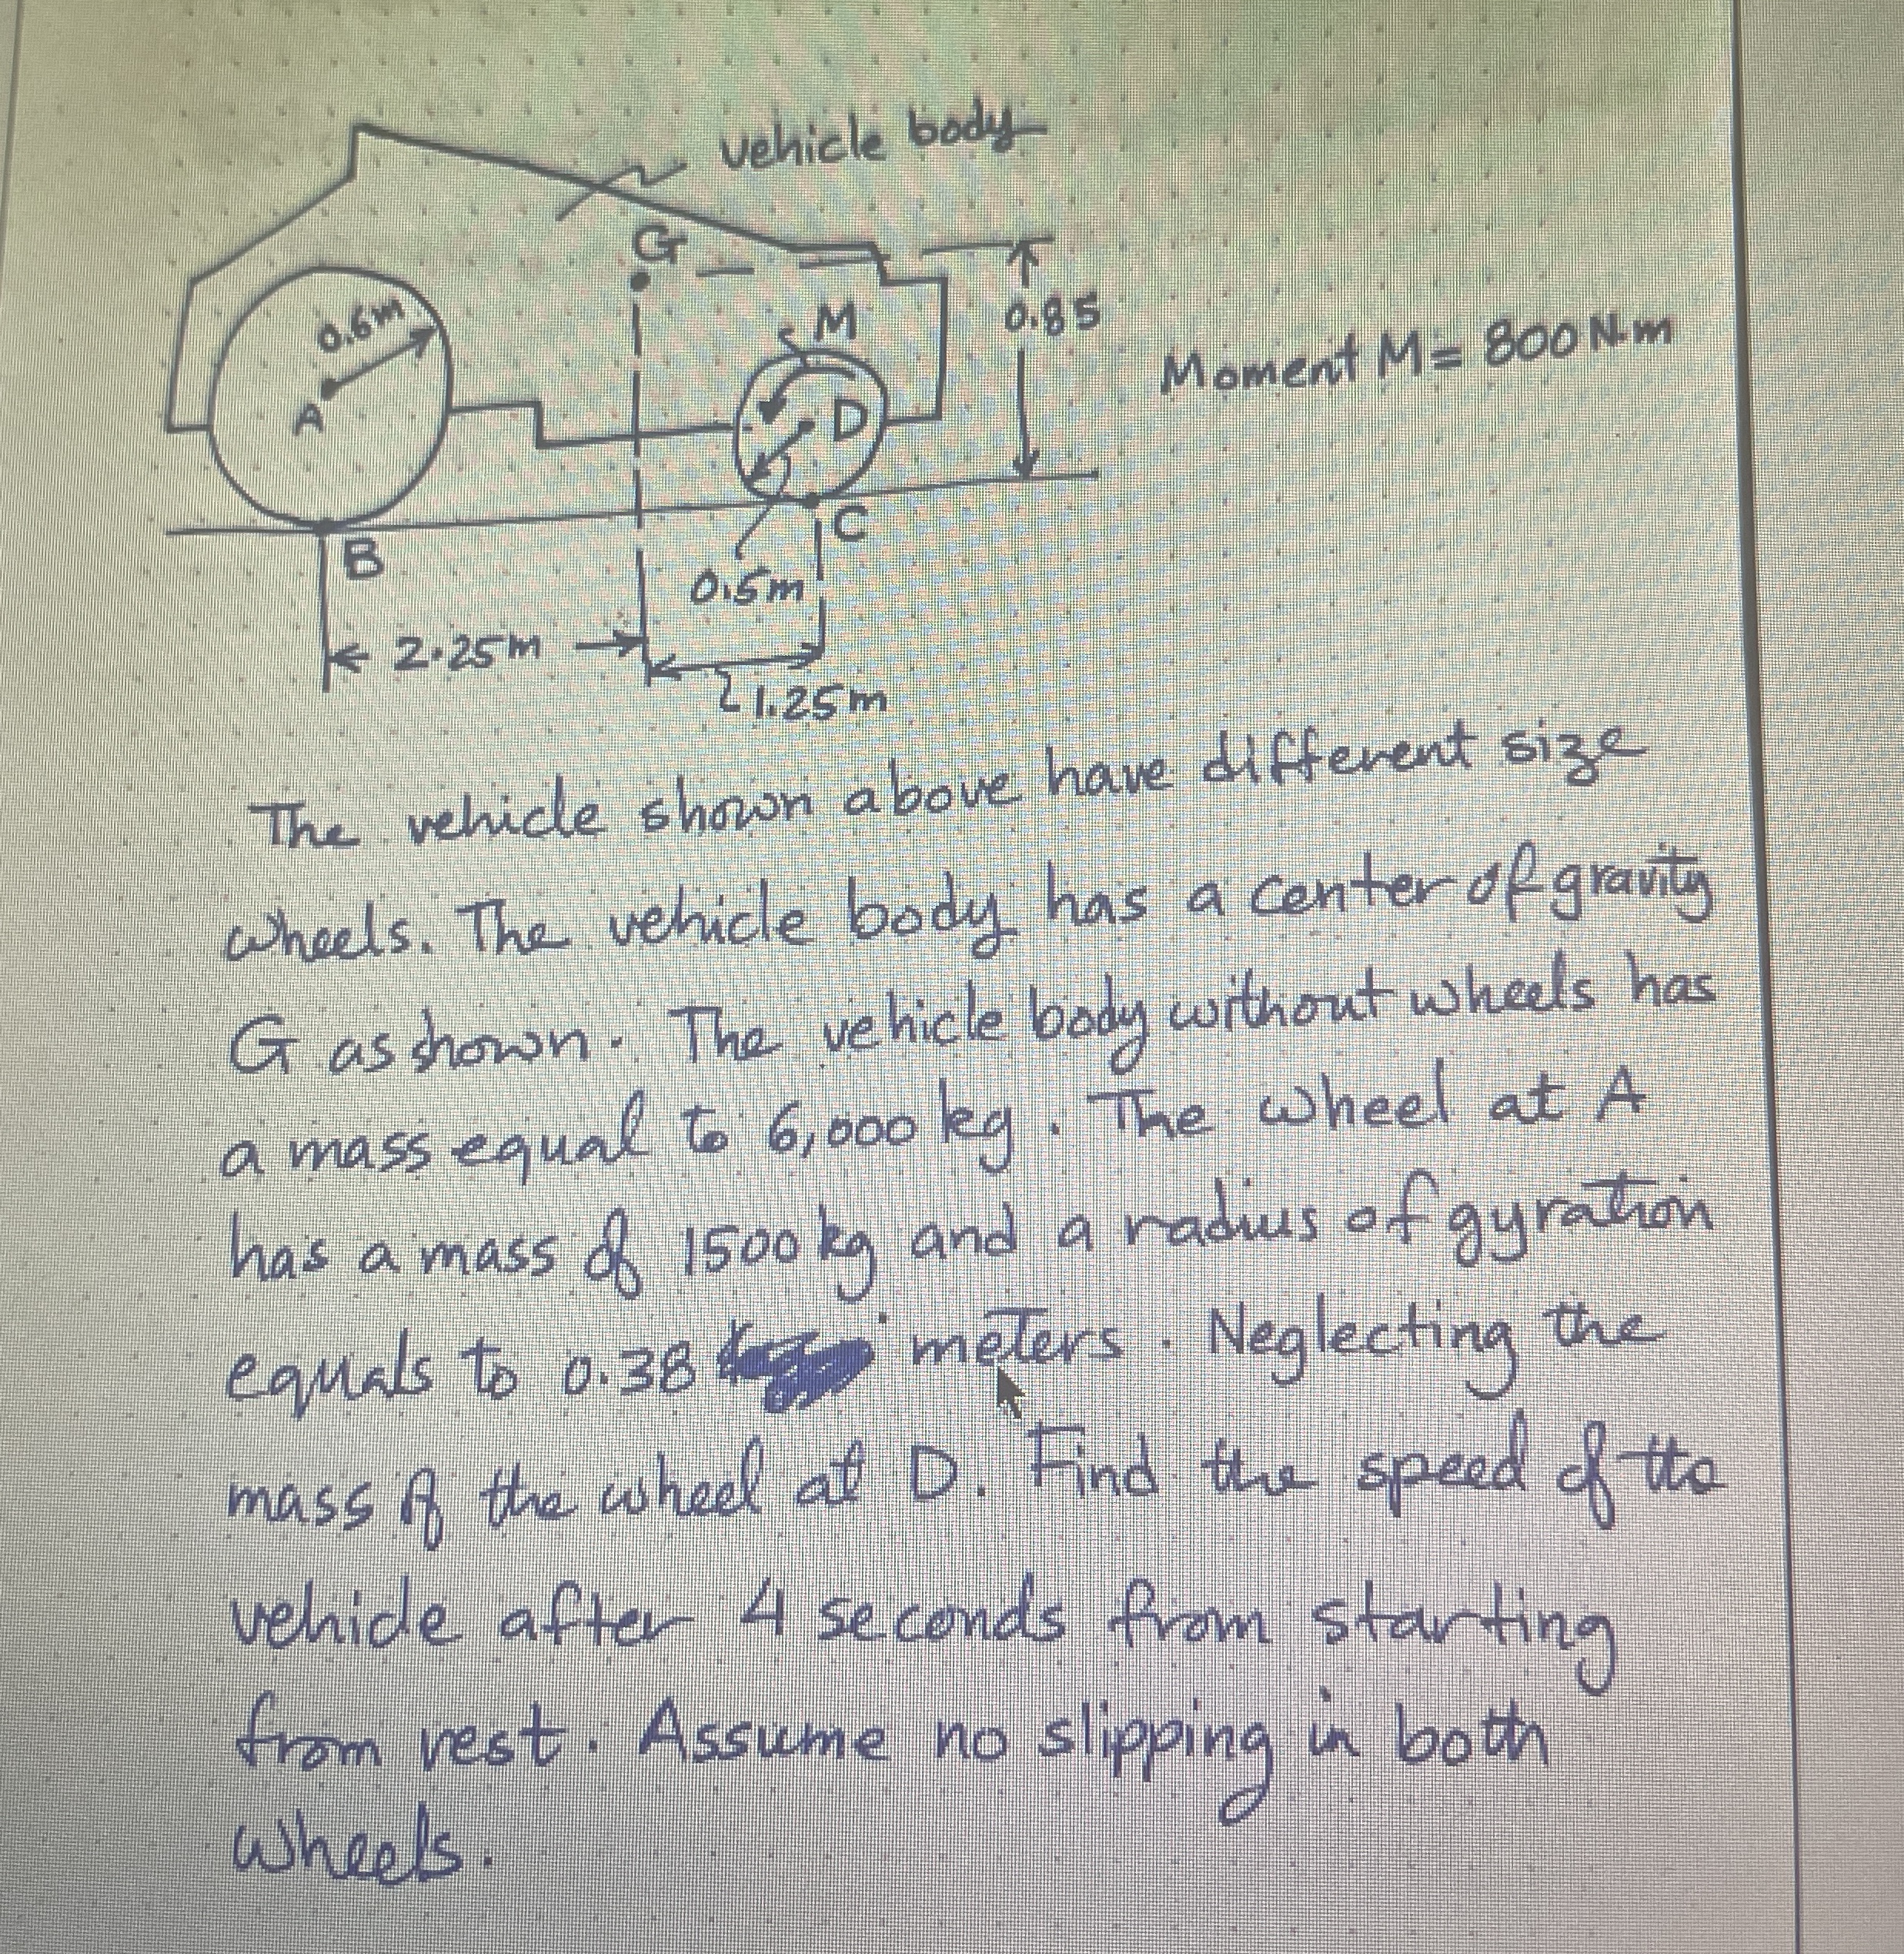 vehicle body
G
0.6m
M
0.85
Moment M = 800 N.m
A
D
B
C
0.5m
2.25m
1.25m
The vehicle shown above have different size
wheels. The vehicle body has a center of gravity
G as shown. The vehicle body without wheels has
a mass equal to 6,000 kg. The wheel at A
has a mass of 1500 kg and a radius of gyration
equals to 0.38 meters. Neglecting the
mass of the wheel at D. Find the speed of the
vehicle after 4 seconds from starting
from rest. Assume no slipping in both
wheels.